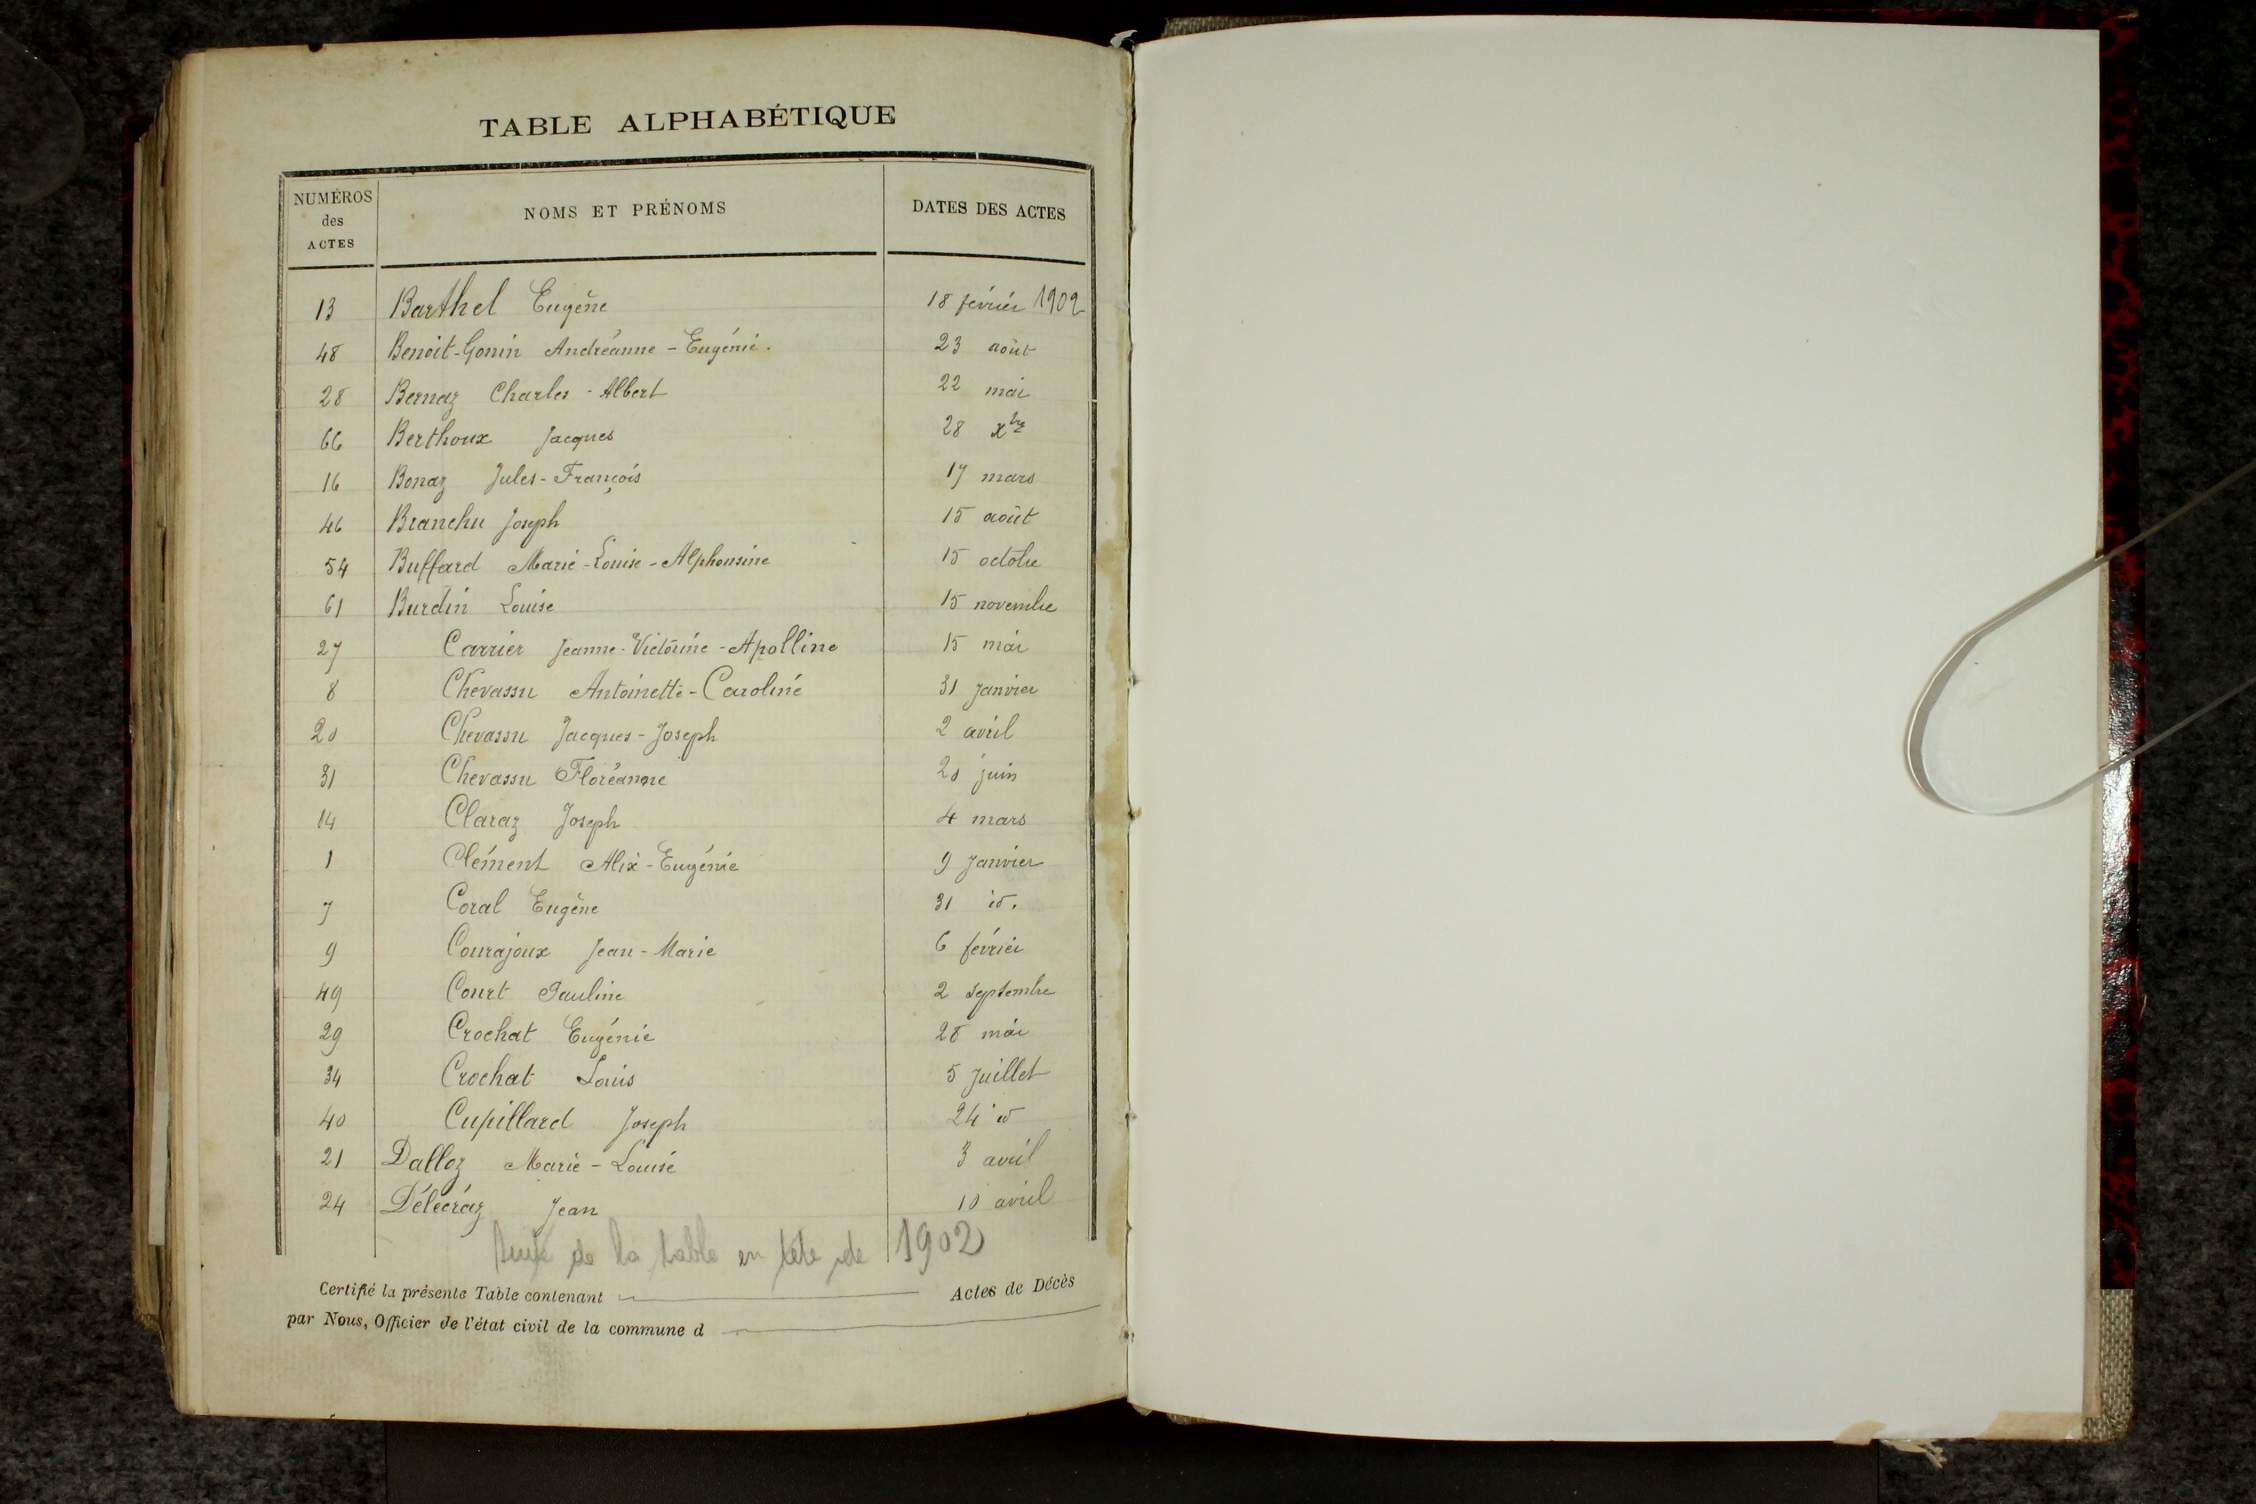 TABLE ALPHABÉTIQUE
NUMÉROS des ACTES NOMS ET PRÉNOMS DATES DES ACTES
13 Barthel Eugène 18 février 1902
48 Benoit-Gonin Andréanne-Eugénie. 23 août
28 Bernaz Charles-Albert 22 mai
66 Berthoux Jacques 28 xbre
16 Bonaz Jules-François 17 mars
46 Branchu Joseph 15 août
54 Buffard Marie-Louise-Alphonsine 15 octobre
61 Burdin Louise 15 novembre
27 Carrier Jeanne-Victorine-Apolline 15 mai
8 Chevassu Antoinette-Caroline 31 janvier
20 Chevassu Jacques-Joseph 2 avril
31 Chevassu Floréanne 20 juin
14 Claraz Joseph 4 mars
1 Clément Alix-Eugénie 9 janvier
7 Coral Eugène 31 id.
9 Courajoux Jean-Marie 6 février
49 Court Pauline 2 septembre
29 Crochat Eugénie 28 mai
34 Crochat Louis 5 juillet
40 Cupillard Joseph 24 id
21 Dalloz Marie-Louise 3 avril
24 Délécraz Jean 10 avril
Suite de la table en tête de 1902
Certifié la présente Table contenant Actes de Décès
par Nous, Officier de l'état civil de la commune d